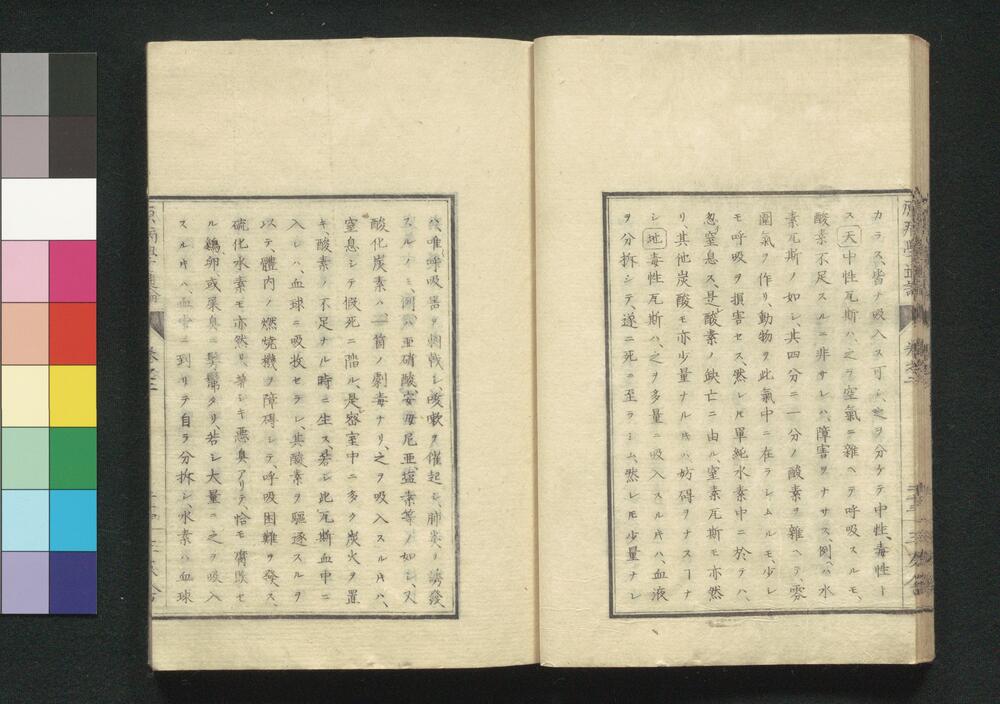 カラス、皆ナ吸入ス可シ、之ヲ分ケテ中性、毒性ー
ス天中性瓦斯ハ、之ヲ空氣ニ雜ヘテ呼吸スルモ、
酸素不足スルニ非サレハ、障害ヲナサス、例ハ水
素瓦斯ノ如シ、其四分ニ一分ノ酸素ヲ雜ヘテ、雰
圍氣ヲ作リ、動物ヲ此氣中ニ在ラシムルモ、少シ
モ呼吸ヲ損害セス、然レ𪜈單純水素中ニ於テハ、
忽窒息ス、是酸素ノ缺亡ニ由ル、窒素瓦斯モ亦然
リ、其他炭酸モ亦少量ナル𪜈ハ妨碍ヲナスヿナ
シ地毒性瓦斯ハ、之ヲ多量ニ吸入スル𪜈ハ、血液
ヲ分拆シテ、遂ニ死ニ至ラシム、然レ𪜈少量ナレ
ハ、唯呼吸器ヲ㓨戟シ、咳嗽ヲ催起シ、肺炎ヲ誘發
スルノミ、例ハ亜硝酸安母尼亜、塩素等ノ如シ、又
酸化炭素ハ一箇ノ劇毒ナリ、之ヲ吸入スル𪜈ハ、
窒息シテ假死ニ陥ル、是密室中ニ多ク炭火ヲ置
キ、酸素ノ不足ナル時ニ生ス、若シ此瓦斯血中ニ
入レハ、血球ニ吸收セラレ、其酸素ヲ驅逐スルヲ
以テ、體内ノ燃焼機ヲ障碍シテ、呼吸困難ヲ發ス、
硫化水素モ亦然リ、甚シキ悪臭アリテ、恰モ腐敗セ
ル鷄卵、或屎臭ニ髣髴タリ、若シ大量ニ之ヲ吸入
スル𪜈ハ、血中ニ到リテ自ラ分拆シ、水素ハ血球